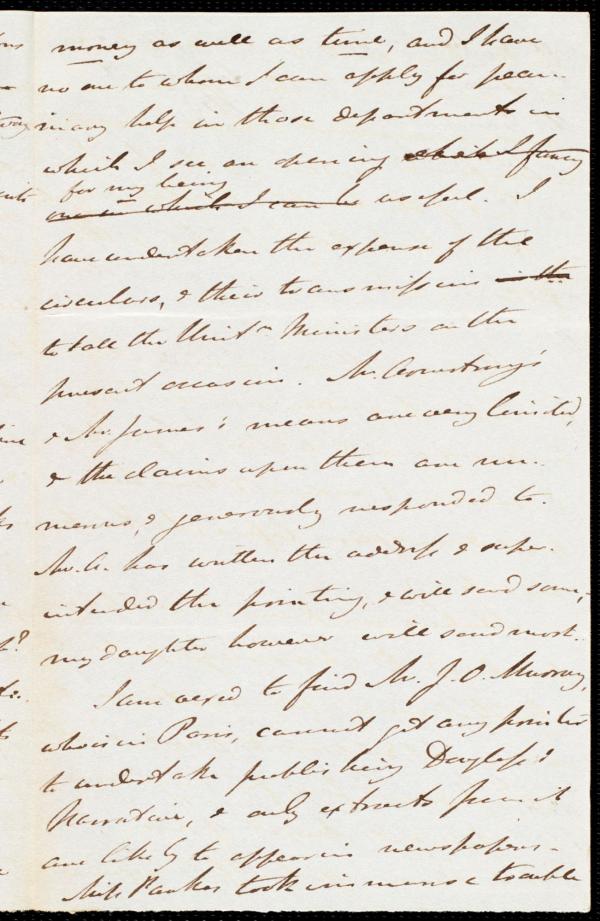 money as well as time, and I have
no one to whom I can apply for pecu-
niary help in those departments in
which I see an opening which I fancy
for my being
one in which I can be useful. I
have undertaken the expense of the
circulars, & their transmission in the
to all the Unitn Ministers on the
present occasion. Mr. Armstrong's
& Mr. James's means are very limited,
& the claims upon them are nu-
merous, & generously responded to.
Mr. A. has written the address & super-
intended the printing, & will send some,
my daughter however will send most.
I am vexed to find Mr. J. O. Murray,
who is in Paris, cannot get any printer
to undertake publishing Douglass's
Narrative, & only extracts from it
are likely to appear in newspapers.
Miss Parkes took immense trouble